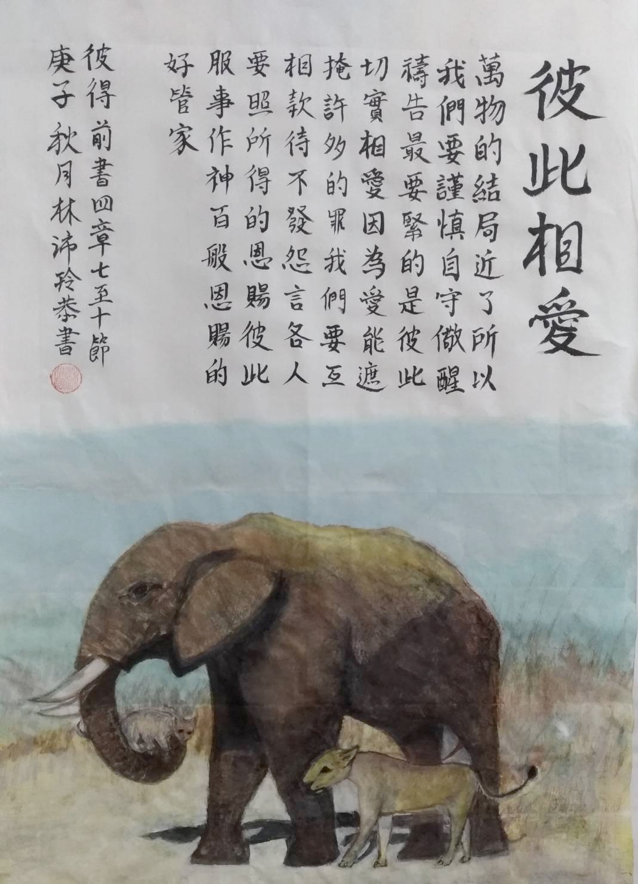 彼此相愛
萬物的結局近了所以
我們要謹慎自守儆醒
禱告最要緊的是彼此
切實相愛因為愛能遮
掩許多的罪我們要互
相款待不發怨言各人
要照所得的恩賜彼此
服事作神百般恩賜的
好管家
彼得前書四章七至十節
庚子秋月林沛玲恭書